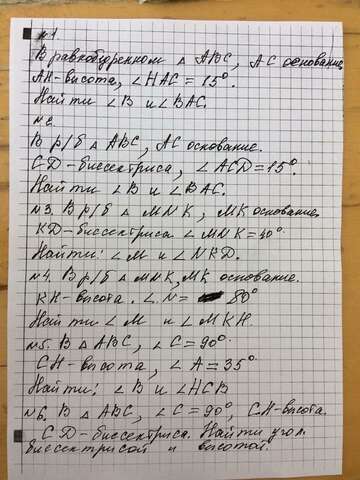 №1.
В равнобедренном △ ABC, AC основание
AH-высота, ∠HAC = 15°.
Найти ∠B и ∠BAC.
№2.
В р/б △ ABC, AC основание.
СД-биссектриса, ∠ACD = 15°
Найти ∠B и ∠BAC.
№3. В р/б △ MNK, MK основание
KD-биссектриса ∠MNK = 40°
Найти: ∠M и ∠NKD.
№4. В р/б △ MNK, MK основание.
KH-высота. ∠N = 80°
Найти ∠M и ∠MKH.
№5. В △ ABC, ∠C = 90°
CH-высота, ∠A = 35°
Найти: ∠B и ∠HCB
№6. В △ ABC, ∠C = 90°, CH-высота.
СД-биссектриса. Найти угол
биссектрисой и высотой.